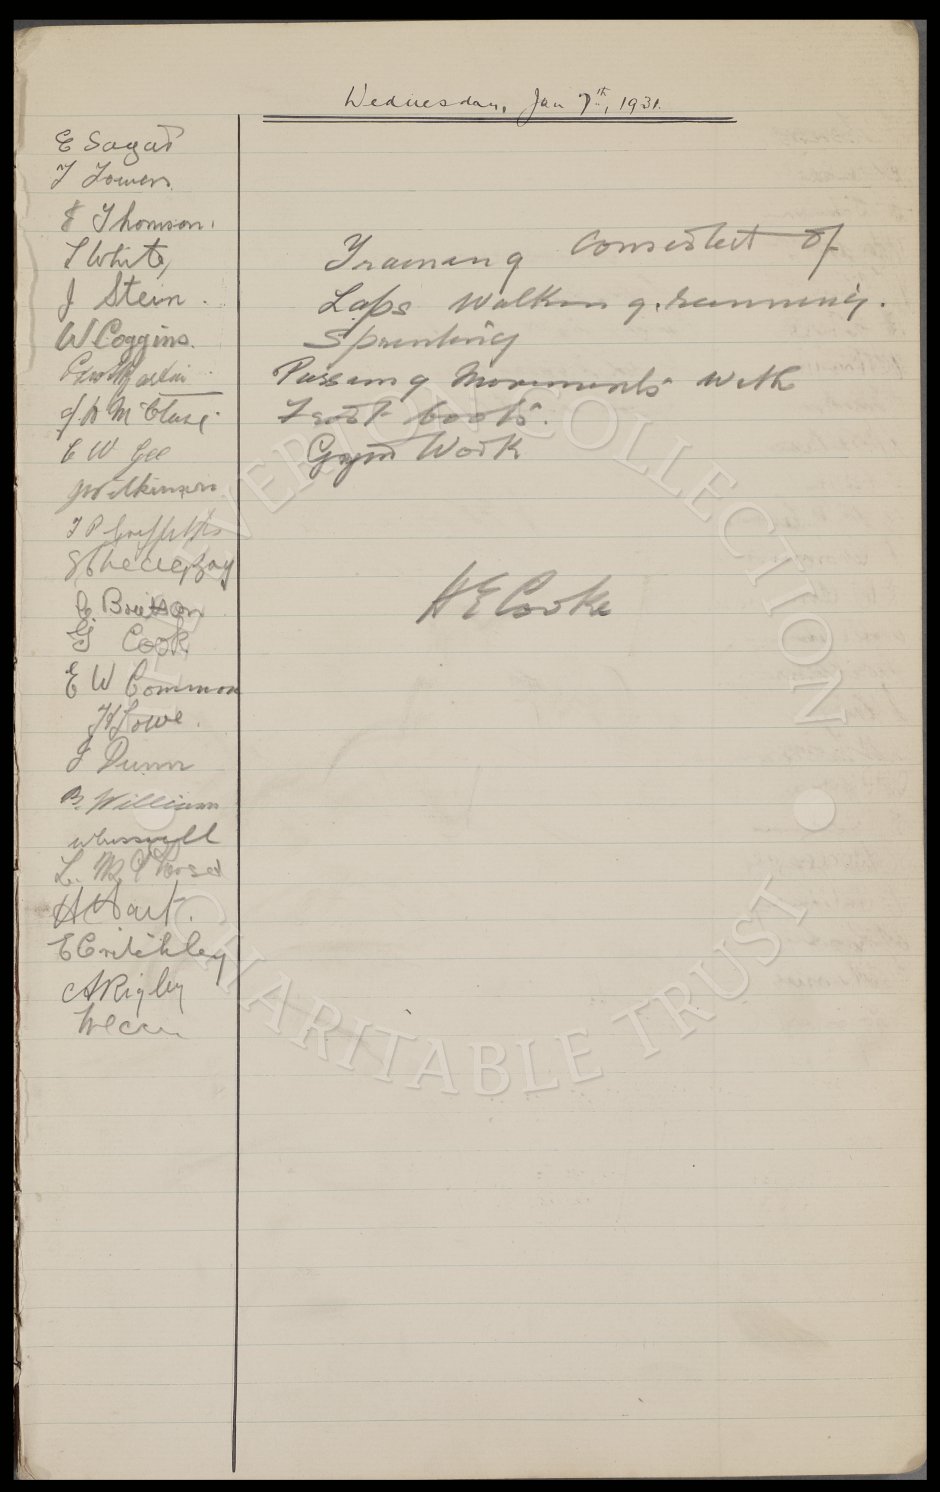 Wednesday, Jan 7th, 1931.
E Sagar
T Lowers
J Thomson.
T White,
J Stein.
W Coggins.
Geo Martin
J D McClure
C W Gee
J Wilkinson
T P Griffiths
C Britton
G Cook
E W Common
H Lowe.
J Dunn
B. Williams
L. McPhose
H Hart.
E Critchley
A Rigby
Training Consistet of
Laps Walking & running.
Sprinting
Passing Movements with
Foot boots.
Gym Work
H E Cooke
THE EVERTON COLLECTION
CHARITABLE TRUST